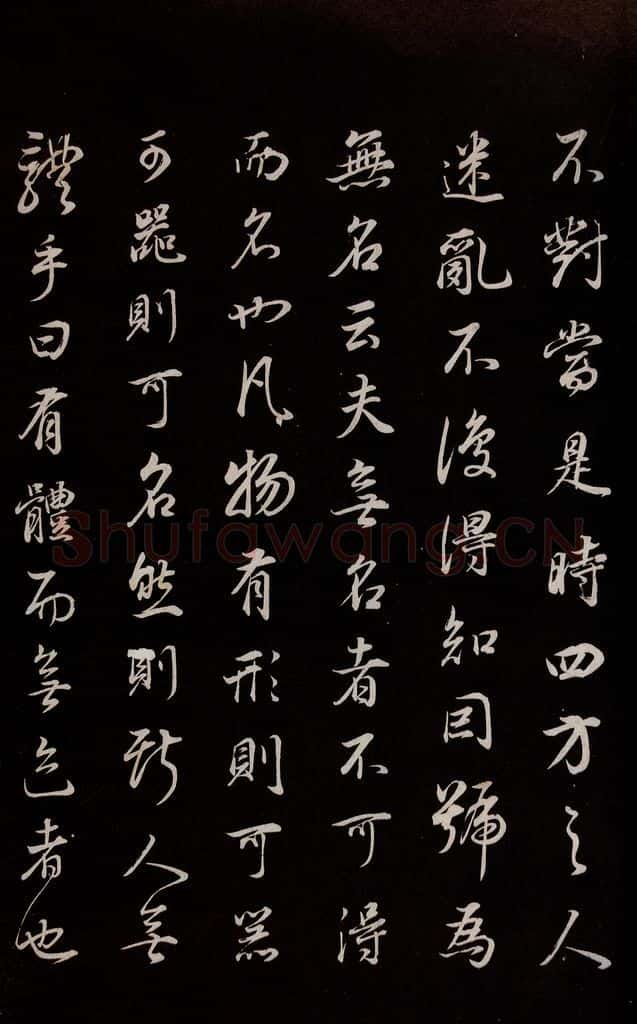 不對當是時四方之人
迷亂不復得知因號為
無名云夫無名者不可得
而名也凡物有形則可器
可器則可名然則斯人無
體乎曰有體而無色者也
Shufawang.CN